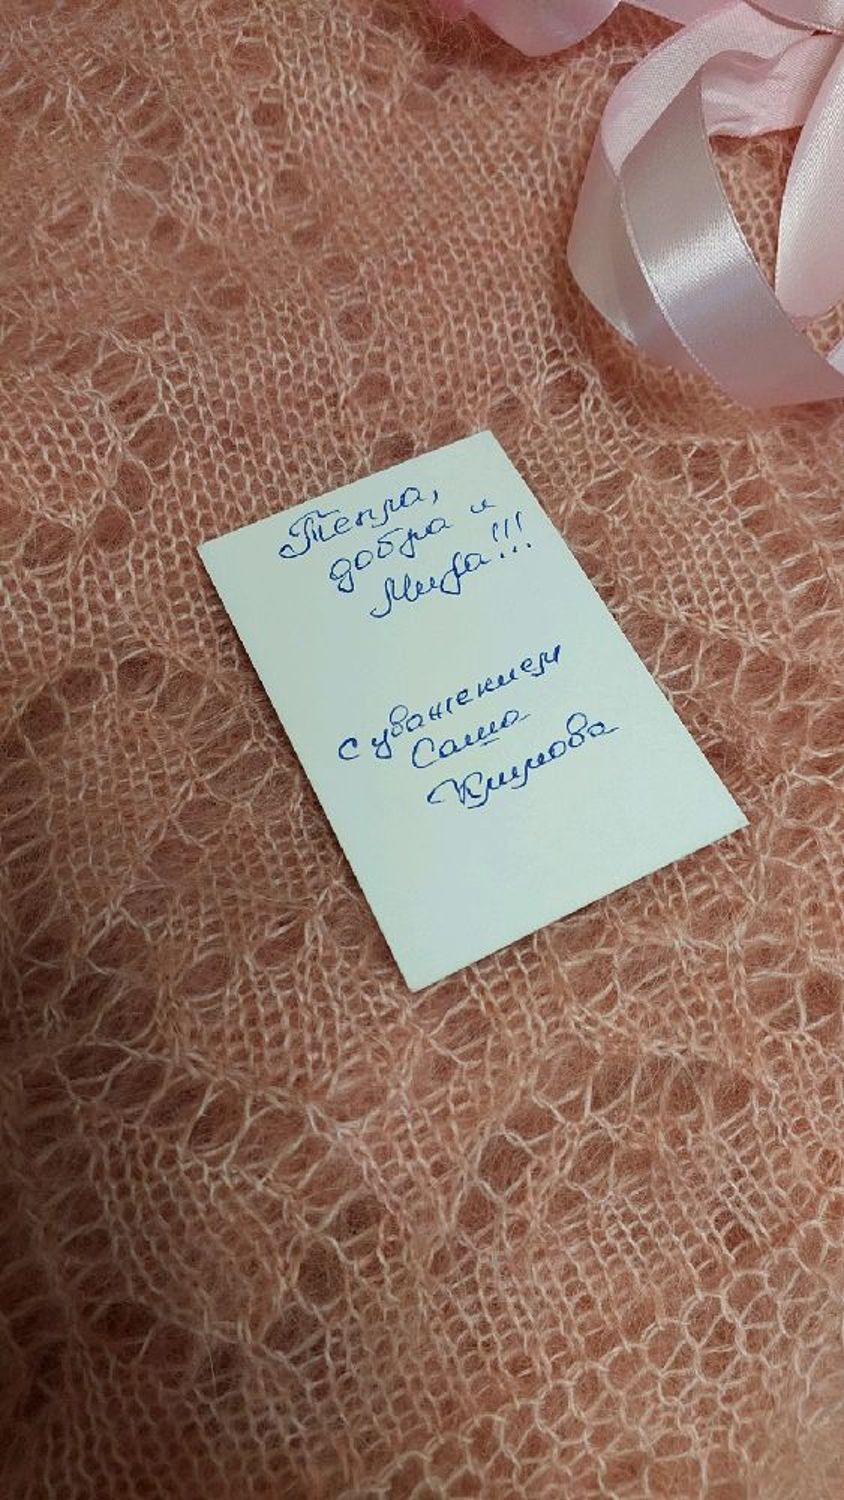 Тепла,
добра и
Мира!!!
с уважением
Саша
Климова